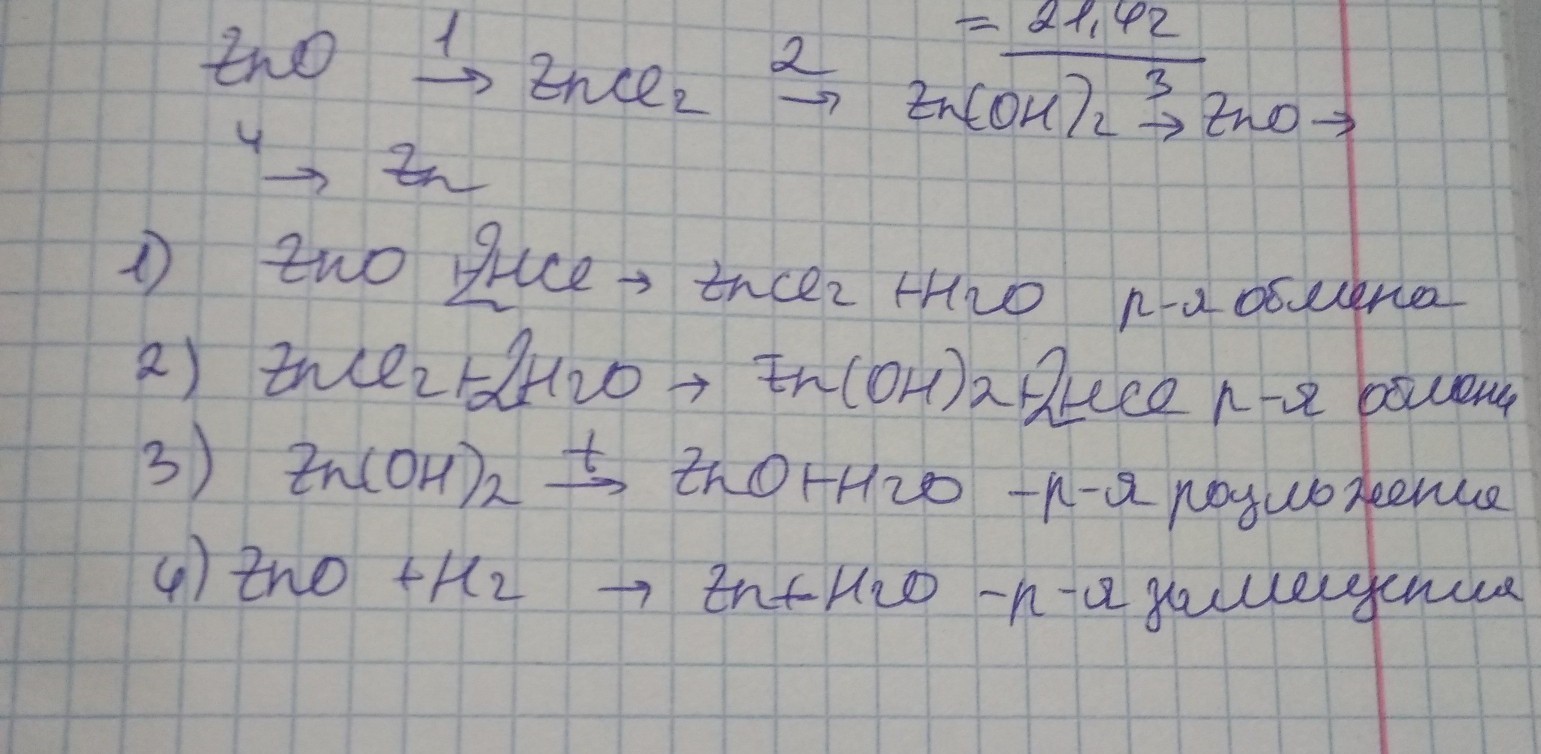 = 21,4г
ZnO 1→ ZnCl2 2→ Zn(OH)2 3→ ZnO →
4→ Zn
1) ZnO +2HCl → ZnCl2 +H2O р-я обмена
2) ZnCl2+2H2O → Zn(OH)2+2HCl р-я обмена
3) Zn(OH)2 t→ ZnO+H2O -р-я разложения
4) ZnO +H2 → Zn+H2O -р-я замещения